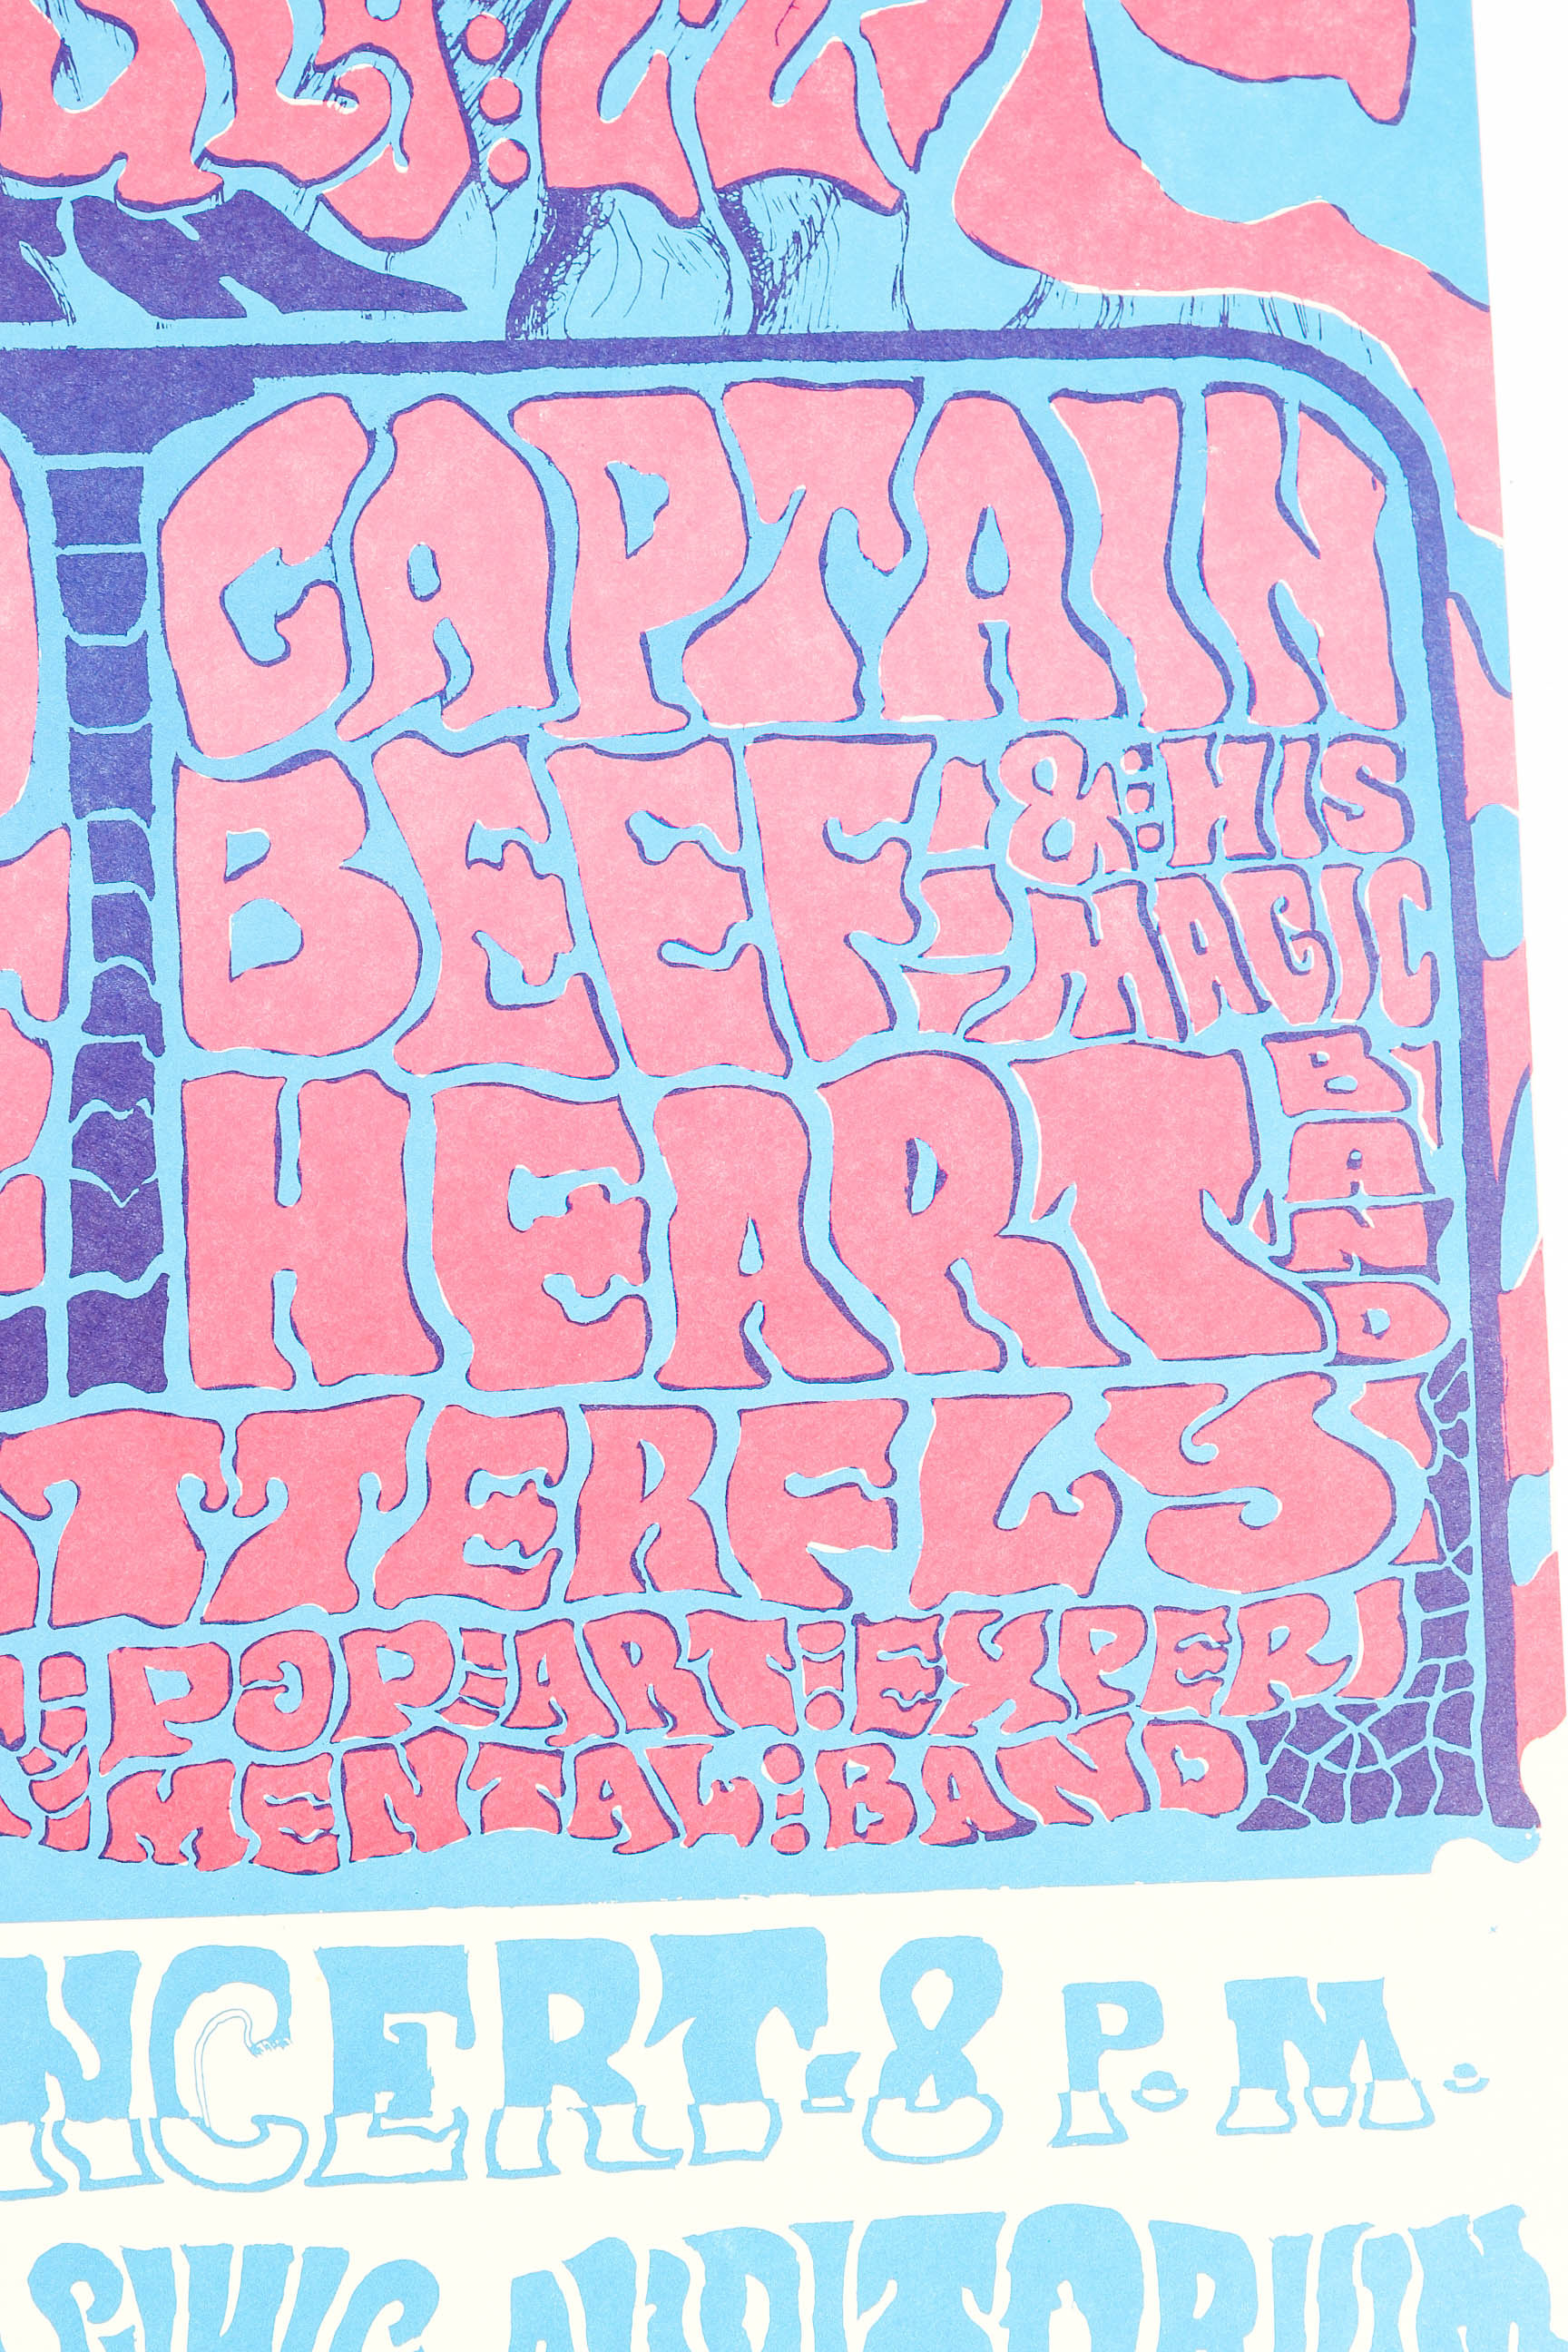 CAPTAIN
BEEF & : HIS
MAGIC
HEART BAND
TTERFLY
: POP = ART : EXPERI
MENTAL : BAND
NCERT · 8 P.M.
CIVIC AUDITORIUM